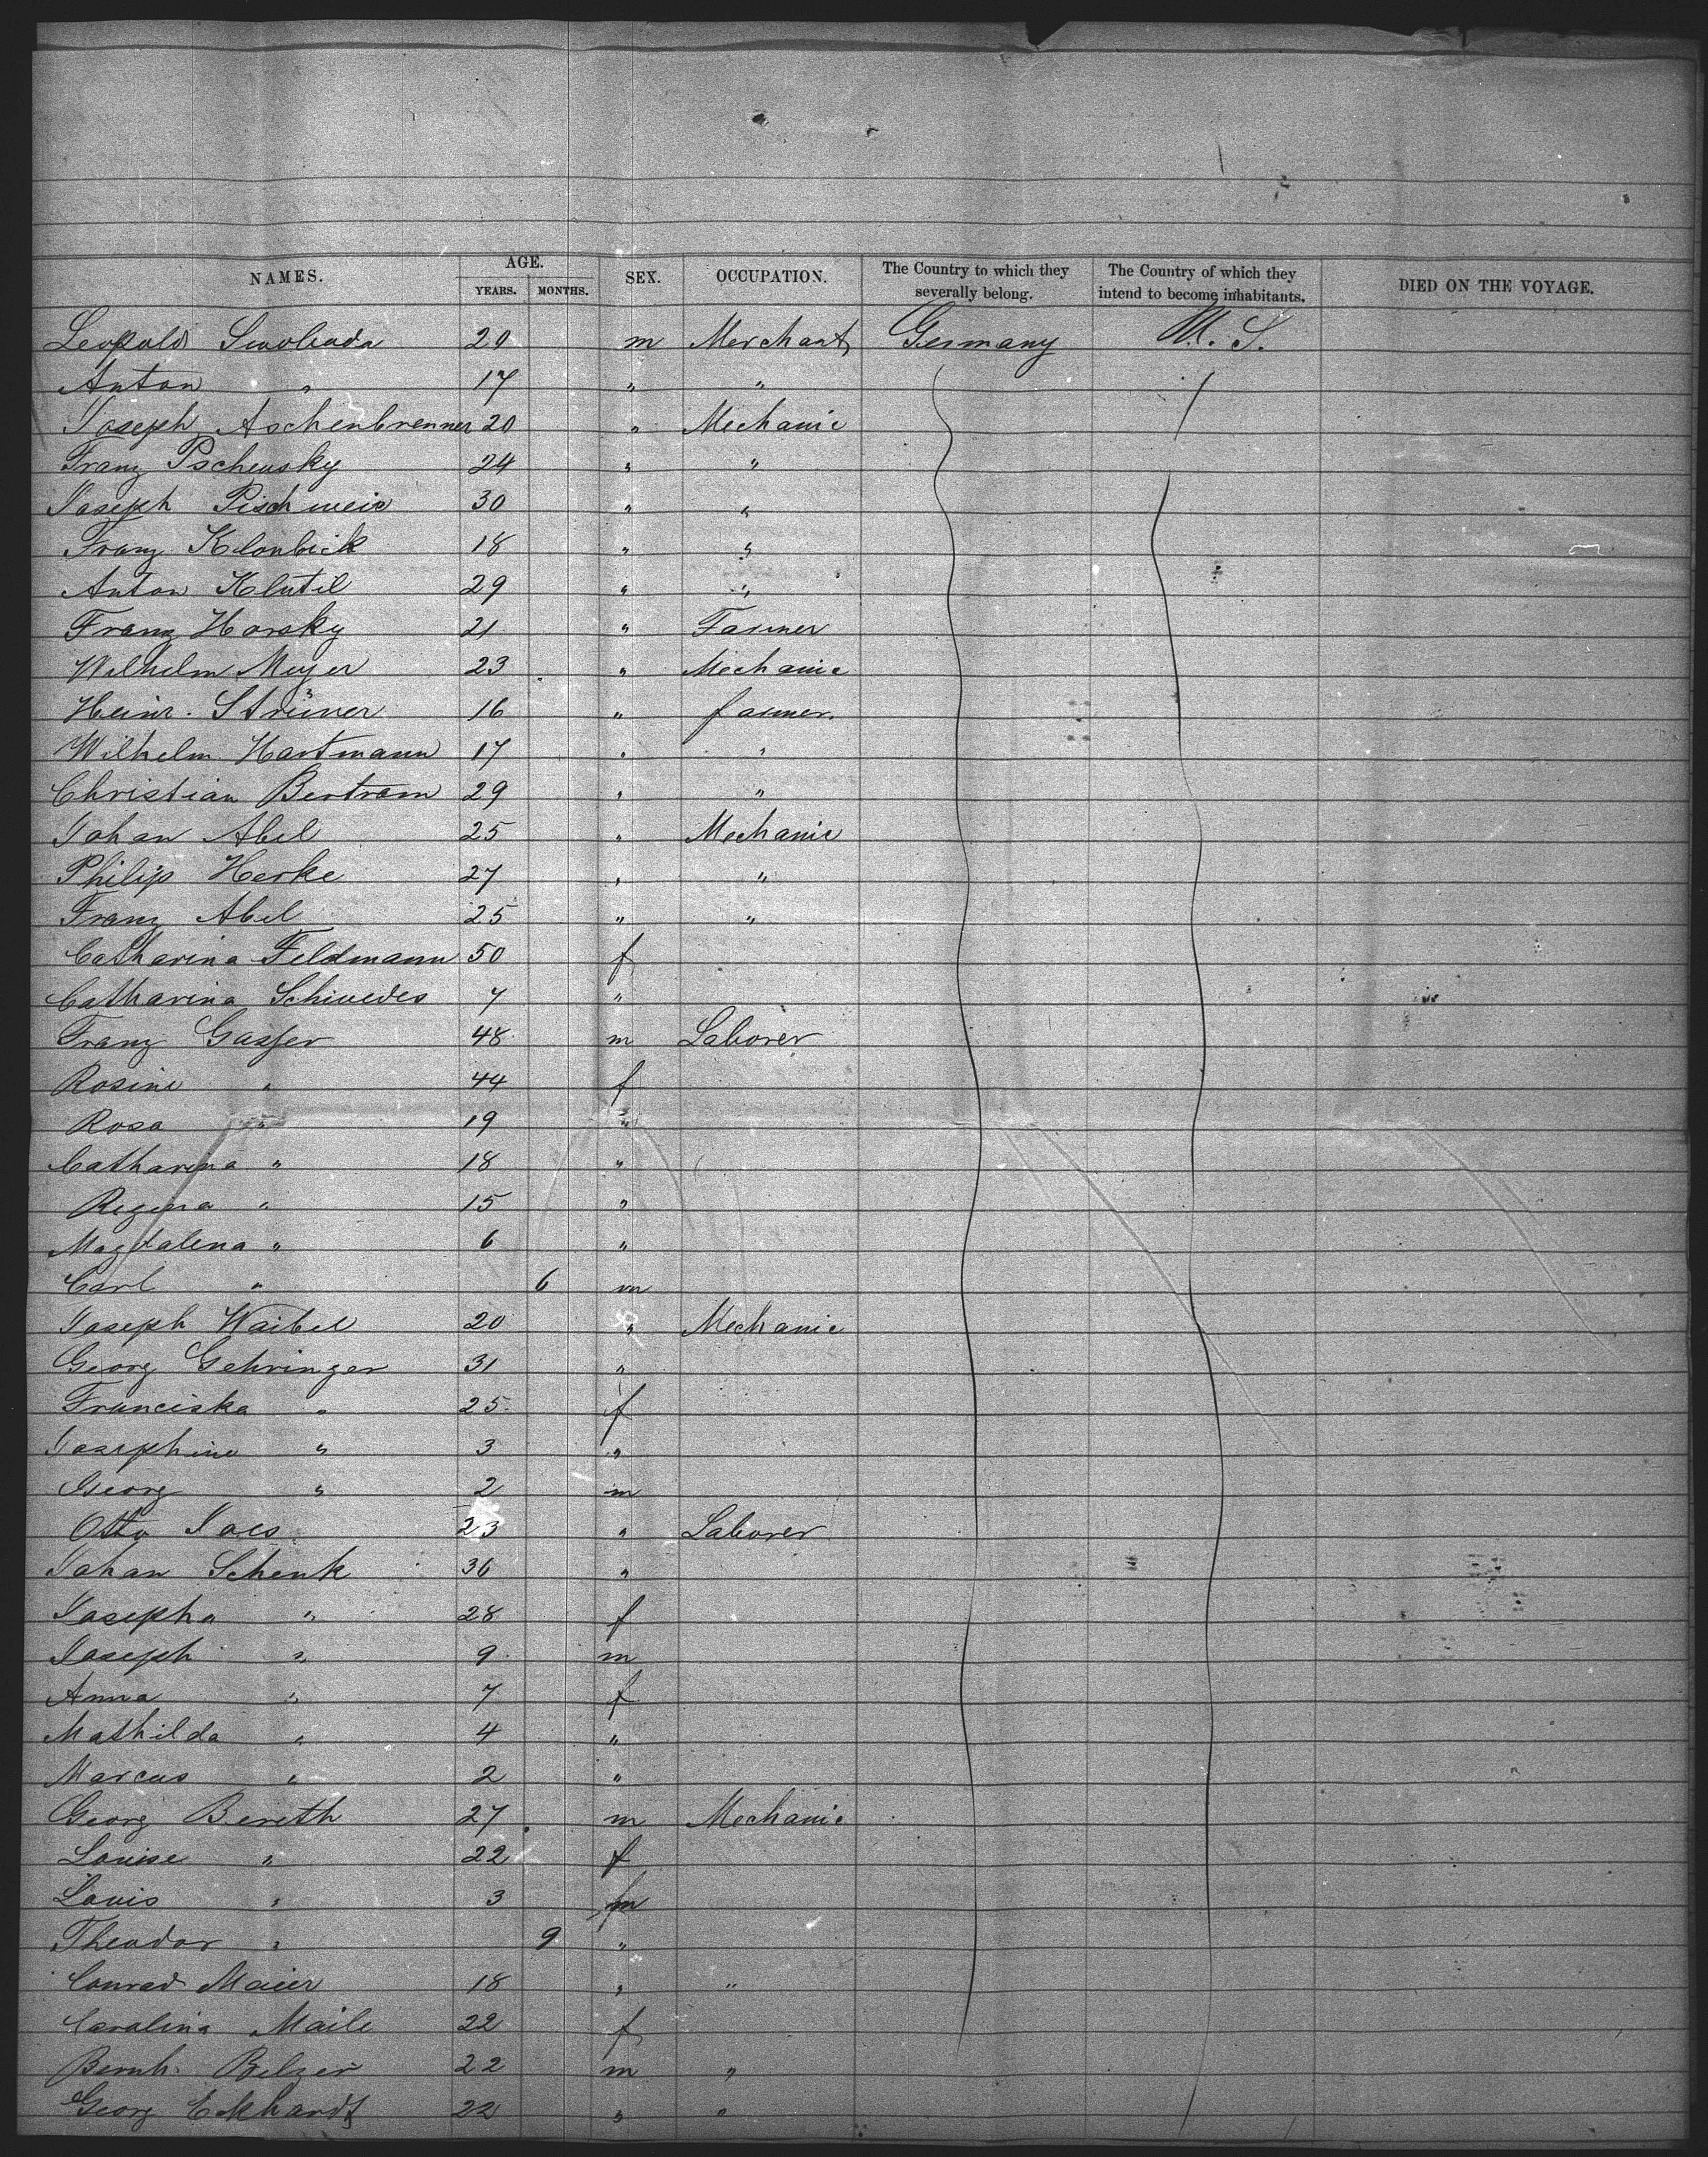 NAMES. AGE. SEX. OCCUPATION. The Country to which they severally belong. The Country of which they intend to become inhabitants. DIED ON THE VOYAGE.
YEARS. MONTHS.
Leopold Swoboda 20 m Merchant Germany U. S.
Anton " 17 " "
Joseph Aschenbrenner 20 " Mechanic
Franz 24 " "
Joseph 30 " "
Franz 18 " "
Anton Klutil 29 " "
Franz Horsky 21 " Farmer
Wilhelm Meyer 23 " Mechanic
Heinr. Strüver 16 " farmer.
Wilhelm Hartmann 17 " "
Christian Bertram 29 " "
Johan Abel 25 " Mechanic
Philip Herke 27 " "
Franz Abel 25 " "
Catharina Feldmann 50 f
Catharina 7 "
Franz Gasser 48 m Laborer
Rosine " 44 f
Rosa " 19 "
Catharina " 18 "
Regina " 15 "
Magdalena " 6 "
Carl " 6 m
Joseph Waibel 20 " Mechanic
Georg Gehringer 31 "
Franciska " 25 f
Josephine " 3 "
Georg " 2 m
Otto 23 " Laborer
Johan Schenk 36 "
Josepha " 28 f
Joseph " 9 m
Anna " 7 f
Mathilda " 4 "
Marcus " 2 "
Georg Bereth 27 m Mechanic
Louise " 22 f
Louis " 3 m
Theodor " 9 "
Conrad Maier 18 " "
Carolina Maile 22 f
Bernh. Belzer 22 m "
Georg Eckhardt 22 " "